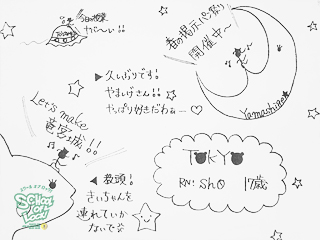 今日の授業
だ〜い!!
春の掲示板祭り
開催中〜
▶久しぶりです!
やましげさん!!☆
やっぱり好きだわぁ…♡
Yamashige☆
Let's make
竜宮城!!
TOKYO
RN: Sho 17歳
◀教頭!
きぃちゃんを
連れていか
ないで
SCHOOL OF LOCK!